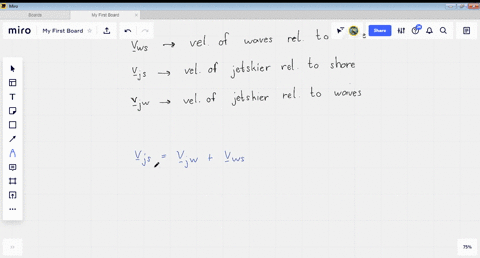 Miro
Boards
My First Board
miro My First Board Share
V̲ws → vel. of waves rel. to
V̲js → vel. of jetskier rel. to shore
V̲jw → vel. of jetskier rel. to waves
V̲js = V̲jw + V̲ws
75%